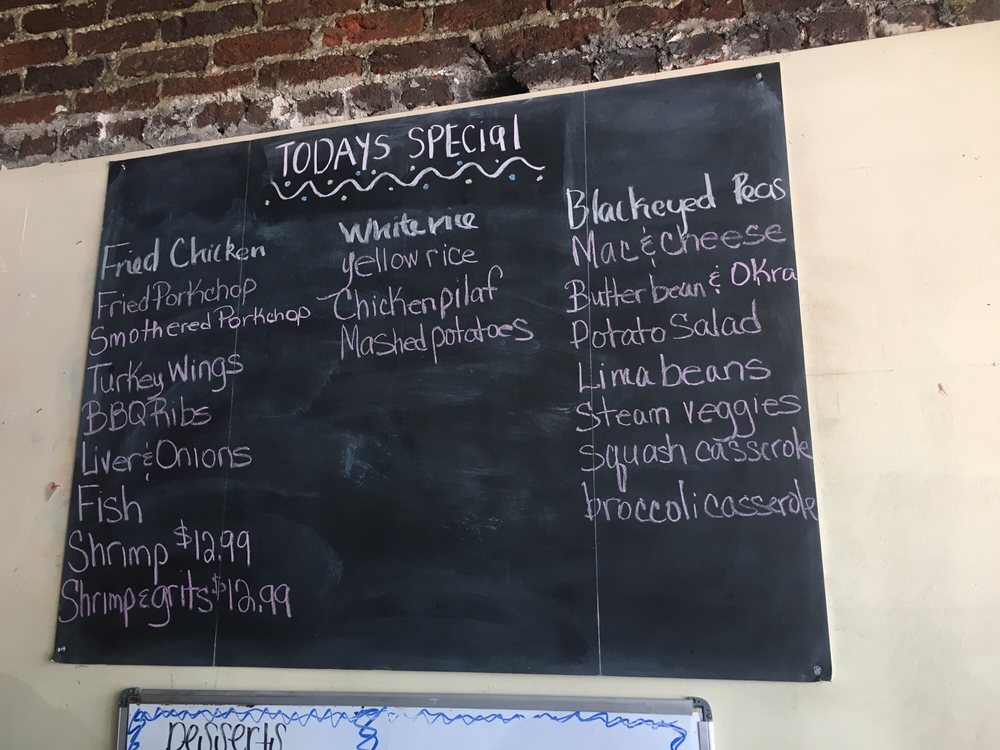 TODAYS SPECIAL
Fried Chicken
Fried Porkchop
Smothered Porkchop
Turkey Wings
BBQ Ribs
Liver & Onions
Fish
Shrimp $12.99
Shrimp & grits $12.99
White rice
yellow rice
Chicken pilaf
Mashed potatoes
Blackeyed Peas
Mac & Cheese
Butter bean & OKra
Potato Salad
Lima beans
Steam veggies
Squash casserole
broccoli casserole
Desserts